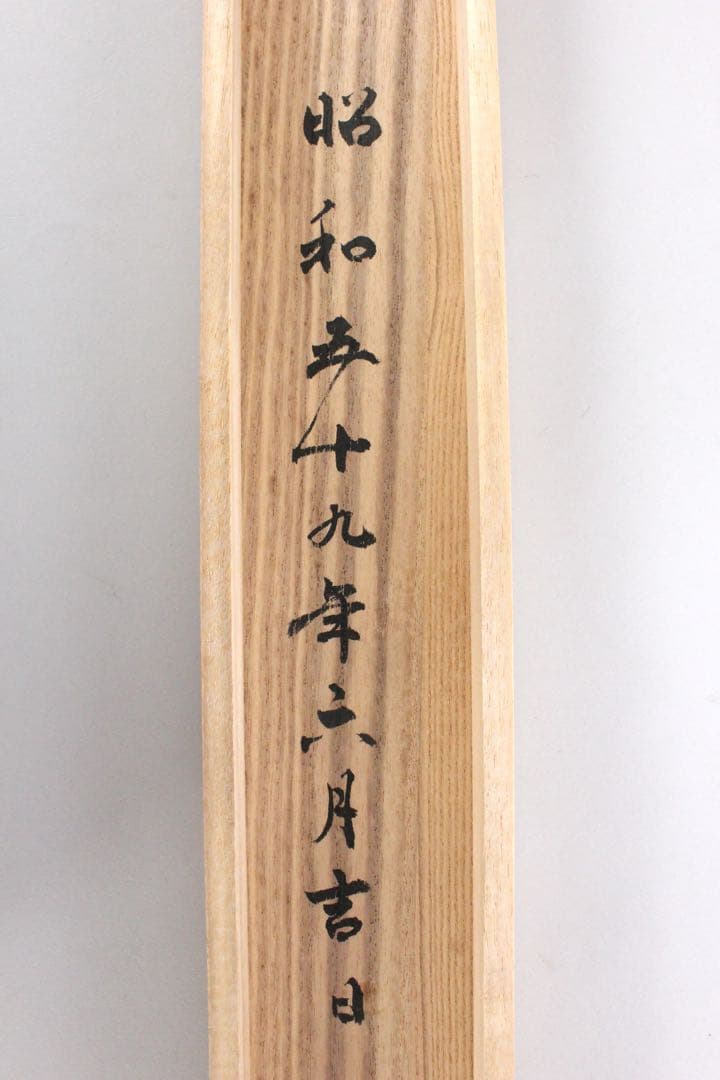 昭和五十九年六月吉日